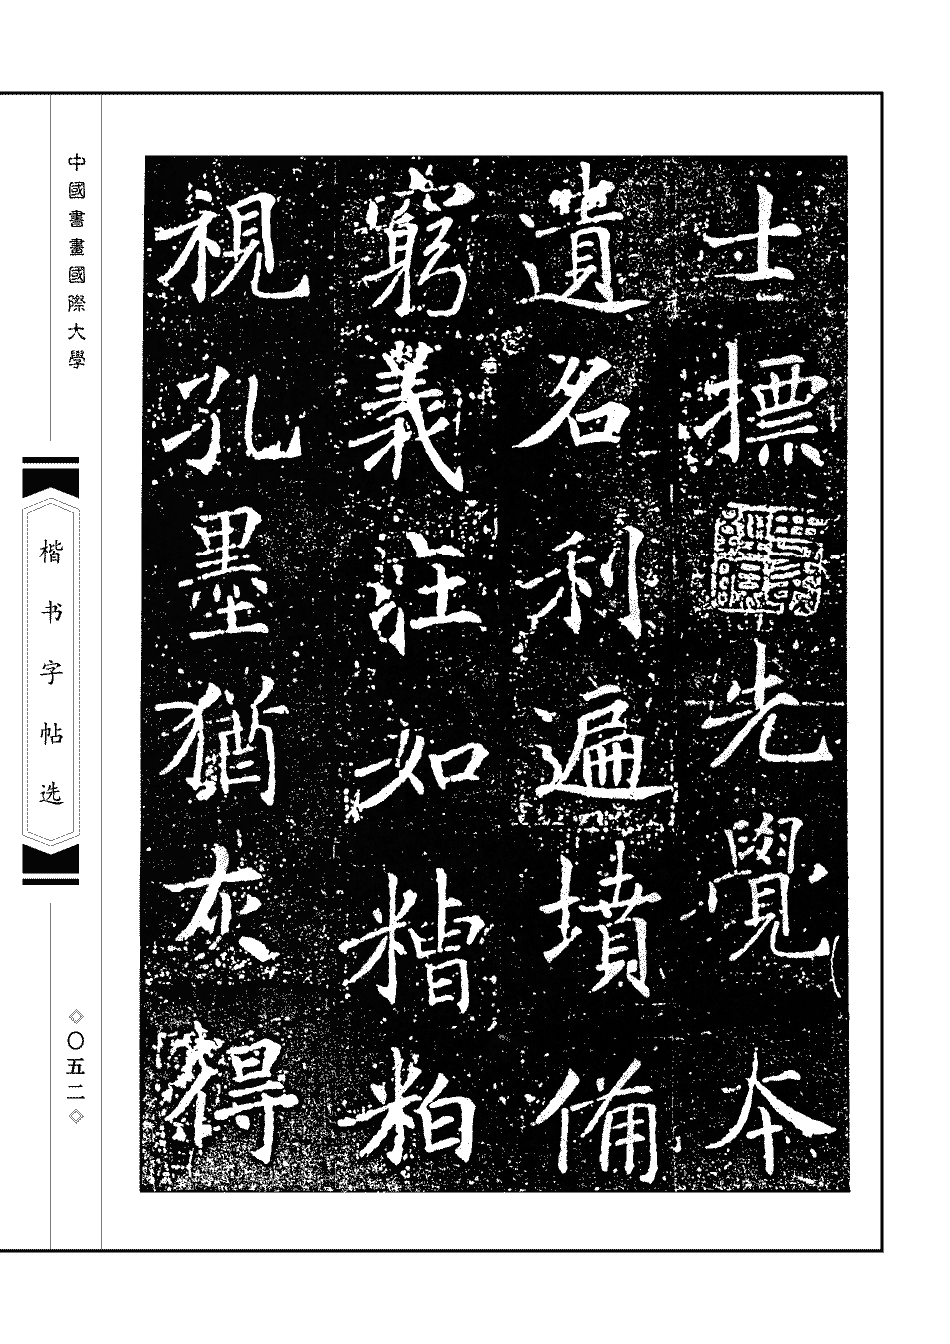 士標先覺本
遺名利遍墳備
窮義注如糟粕
視孔墨猶灰得
中國書畫國際大學
楷书字帖选
◇〇五二◇